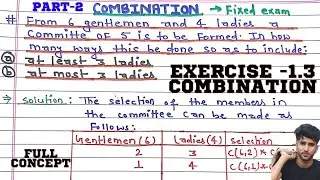 PART-2 COMBINATION → Fixed exam
⇒ From 6 gentlemen and 4 ladies a
Committe of 5 is to be formed. In how
many ways this be done so as to include:
(a) at least 3 ladies
(b) at most 3 ladies
EXERCISE -1.3
COMBINATION
⇒ solution: The selection of the members in
the committee can be made as
Follows:
FULL
CONCEPT
Gentlemen(6) Ladies(4) selection
2 3 C(6,2)×
1 4 C(6,1)×